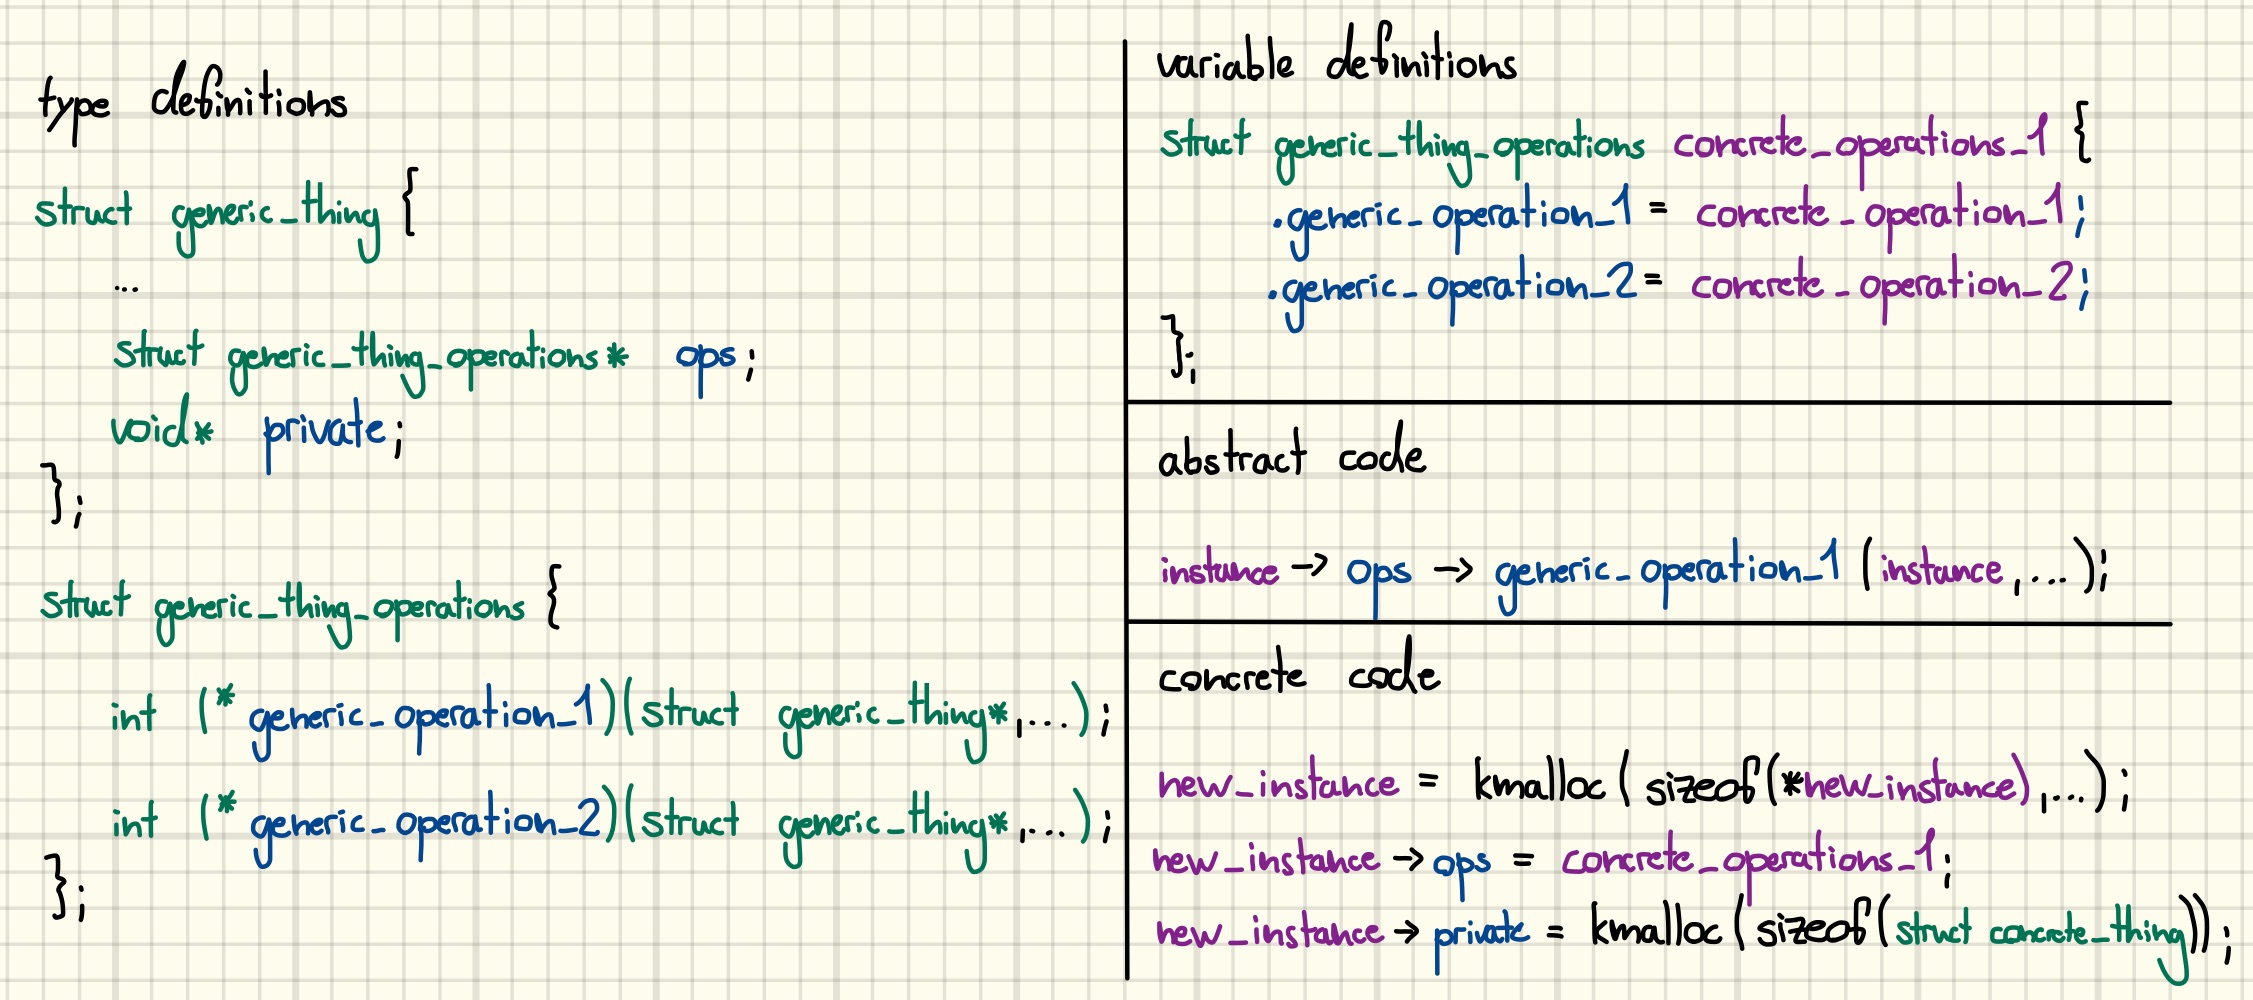 type definitions
struct generic_thing {
...
struct generic_thing_operations* ops;
void* private;
};
struct generic_thing_operations {
int (*generic_operation_1)(struct generic_thing*,...);
int (*generic_operation_2)(struct generic_thing*,...);
};
variable definitions
struct generic_thing_operations concrete_operations_1 {
.generic_operation_1 = concrete_operation_1;
.generic_operation_2 = concrete_operation_2;
};
abstract code
instance -> ops -> generic_operation_1 (instance,...);
concrete code
new_instance = kmalloc(sizeof(*new_instance),...);
new_instance -> ops = concrete_operations_1;
new_instance -> private = kmalloc(sizeof(struct concrete_thing));